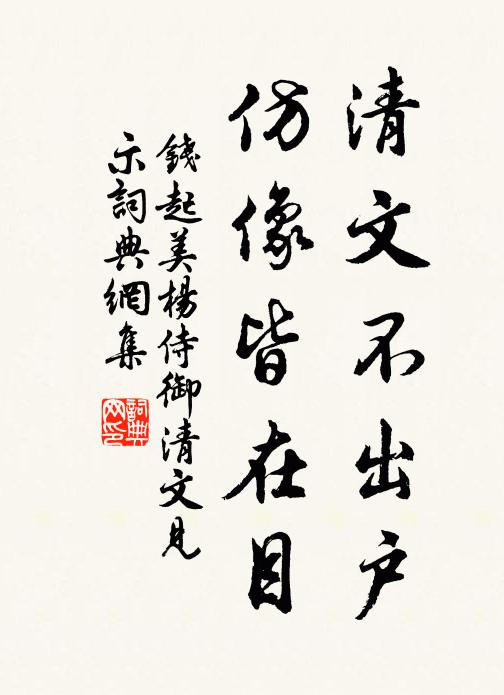 清文不出户
仿像皆在目
錢起美楊侍御清文見
示詞典網集
詞典
网印